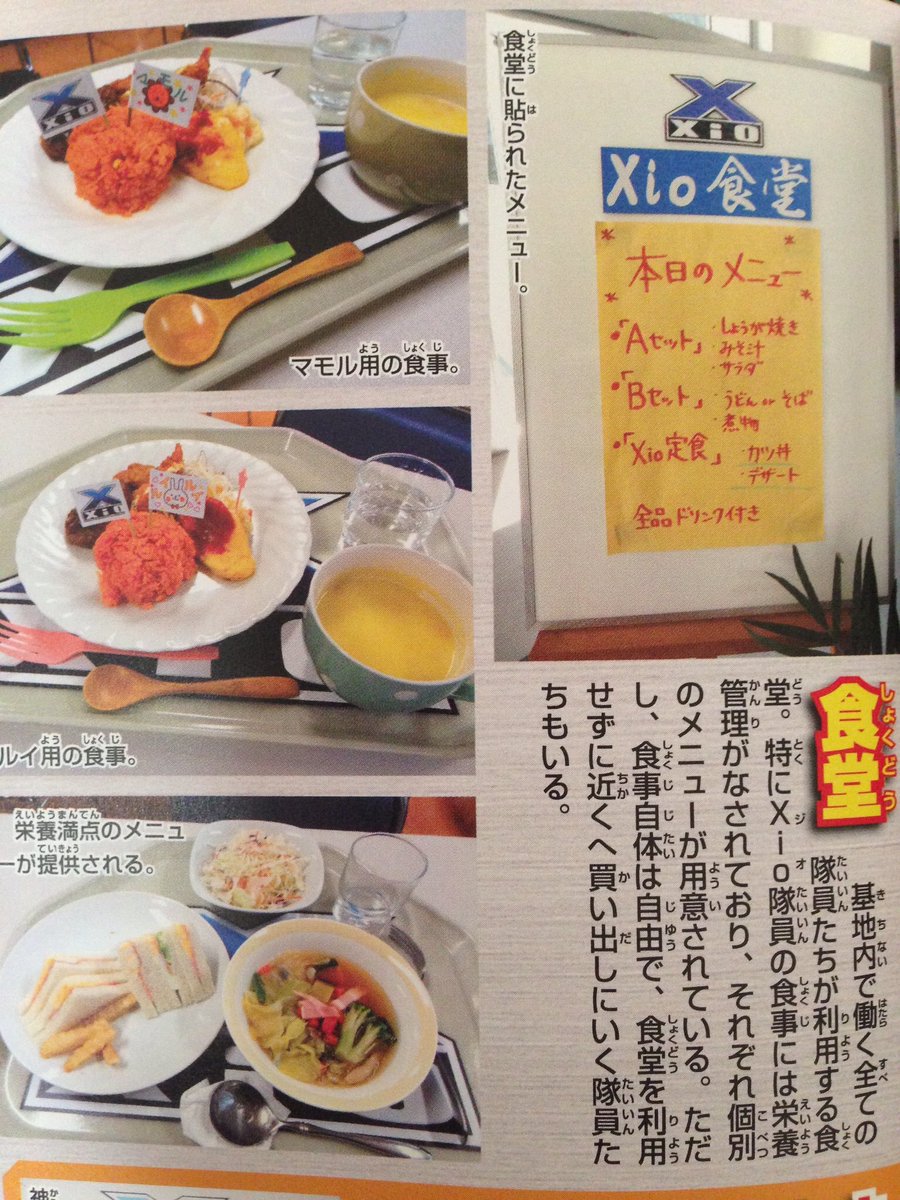 食堂に貼られたメニュー。
XiO
Xio 食堂
本日のメニュー
・「Aセット」
・しょうが焼き
・みそ汁
・サラダ
・「Bセット」
・うどん or そば
・煮物
・「Xio定食」
・カツ丼
・デザート
全品ドリンク付き
XiO
マモル
マモル用の食事。
XiO
ルイ用の食事。
栄養満点のメニュ
ーが提供される。
しょくどう
食堂
基地内で働く全ての
隊員たちが利用する食
堂。特にXio隊員の食事には栄養
管理がなされており、それぞれ個別
のメニューが用意されている。ただ
し、食事自体は自由で、食堂を利用
せずに近くへ買い出しにいく隊員た
ちもいる。
神